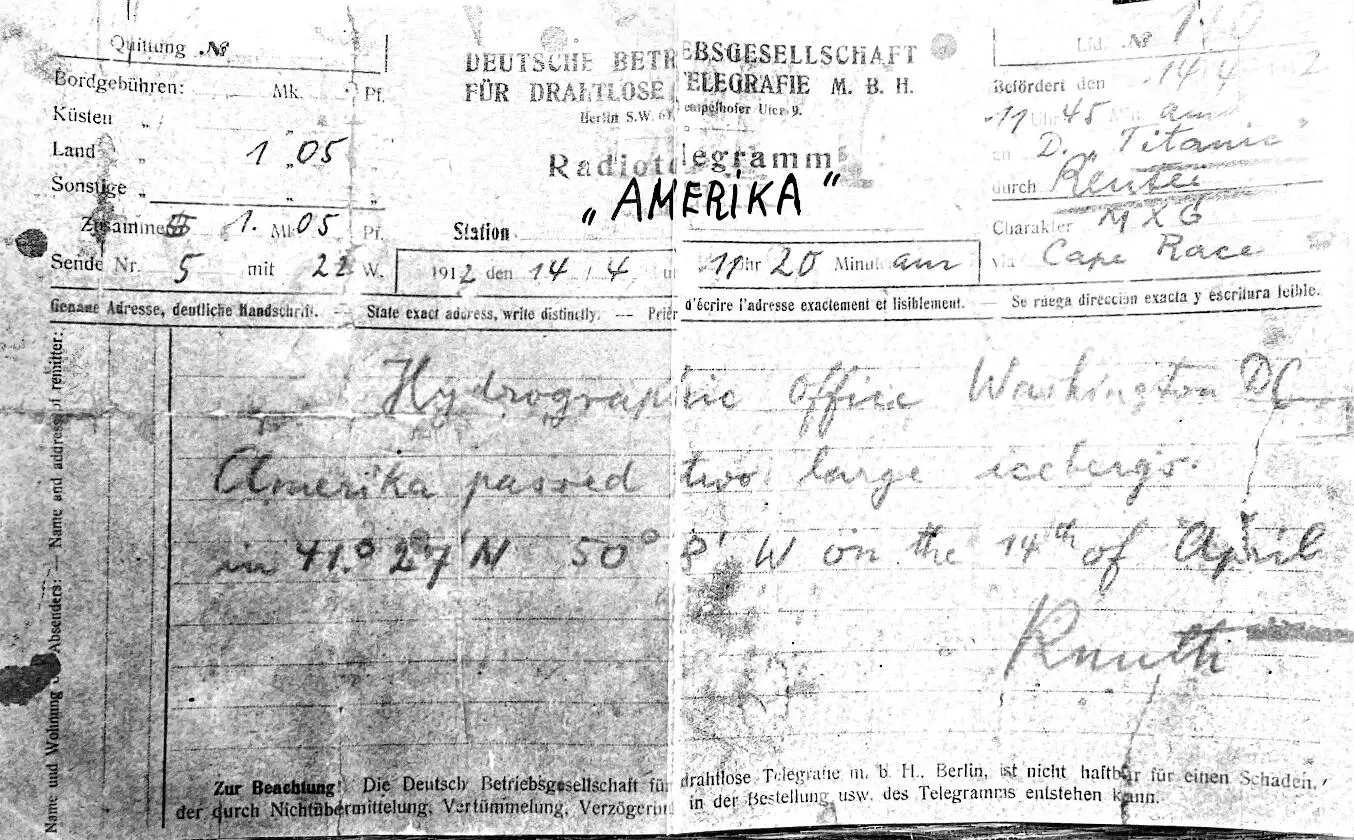 Quittung №
Bordgebühren: Mk. Pf.
Küsten „ „
Land „ 1 „ 05
Sonstige „ „
Zusammen 1. Mk 05 Pf.
Sende Nr. 5 mit 22 W.
DEUTSCHE BETRIEBSGESELLSCHAFT
FÜR DRAHTLOSE TELEGRAFIE M. B. H.
Berlin S.W. 61, Tempelhofer Ufer 9.
Radiotelegramm
„AMERIKA"
Station
1912 den 14 / 4 um 11 Uhr 20 Minut am
Lfd. №
Befördert den 14
11 Uhr 45 am
an D. „Titanic"
durch Reuter
Charakter MXG
via Cape Race
Genaue Adresse, deutliche Handschrift. — State exact address, write distinctly. — Prière d'écrire l'adresse exactement et lisiblement. — Se ruega dirección exacta y escritura leible.
Name und Wohnung des Absenders: — Name and address of remitter:
Hydrographic Office Washington DC
Amerika passed two large icebergs.
in 41° 27' N 50° 8' W on the 14th of April
Knuth
Zur Beachtung! Die Deutsch Betriebsgesellschaft für drahtlose Telegrafie m. b. H., Berlin, ist nicht haftbar für einen Schaden,
der durch Nichtübermittelung, Vertümmelung, Verzögerung in der Bestellung usw. des Telegramms entstehen kann.